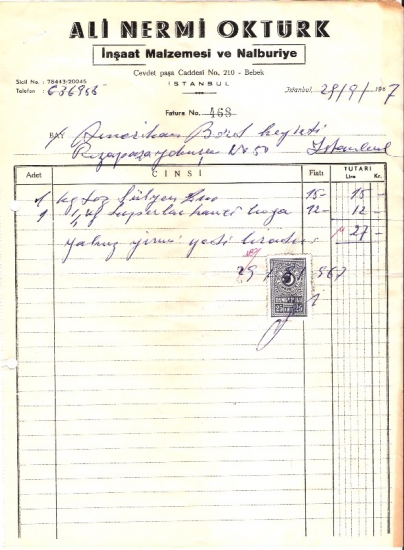 ALİ NERMİ OKTÜRK
İnşaat Malzemesi ve Nalburiye
Cevdet paşa Caddesi No. 210 - Bebek
İSTANBUL
Sicil No. : 78443/20045
Telefon : 636956
İstanbul, 29/9/1967
Fatura No. 468
BAY Amerikan Bord heyeti
Rızapaşa yokuşu No 50 İstanbul
Adet CİNSİ Fiatı TUTARI
Lira Kr.
1 kg toz 15- 15-
1 12- 12-
yalnız yirmi yedi liradır 27-
29 9 967